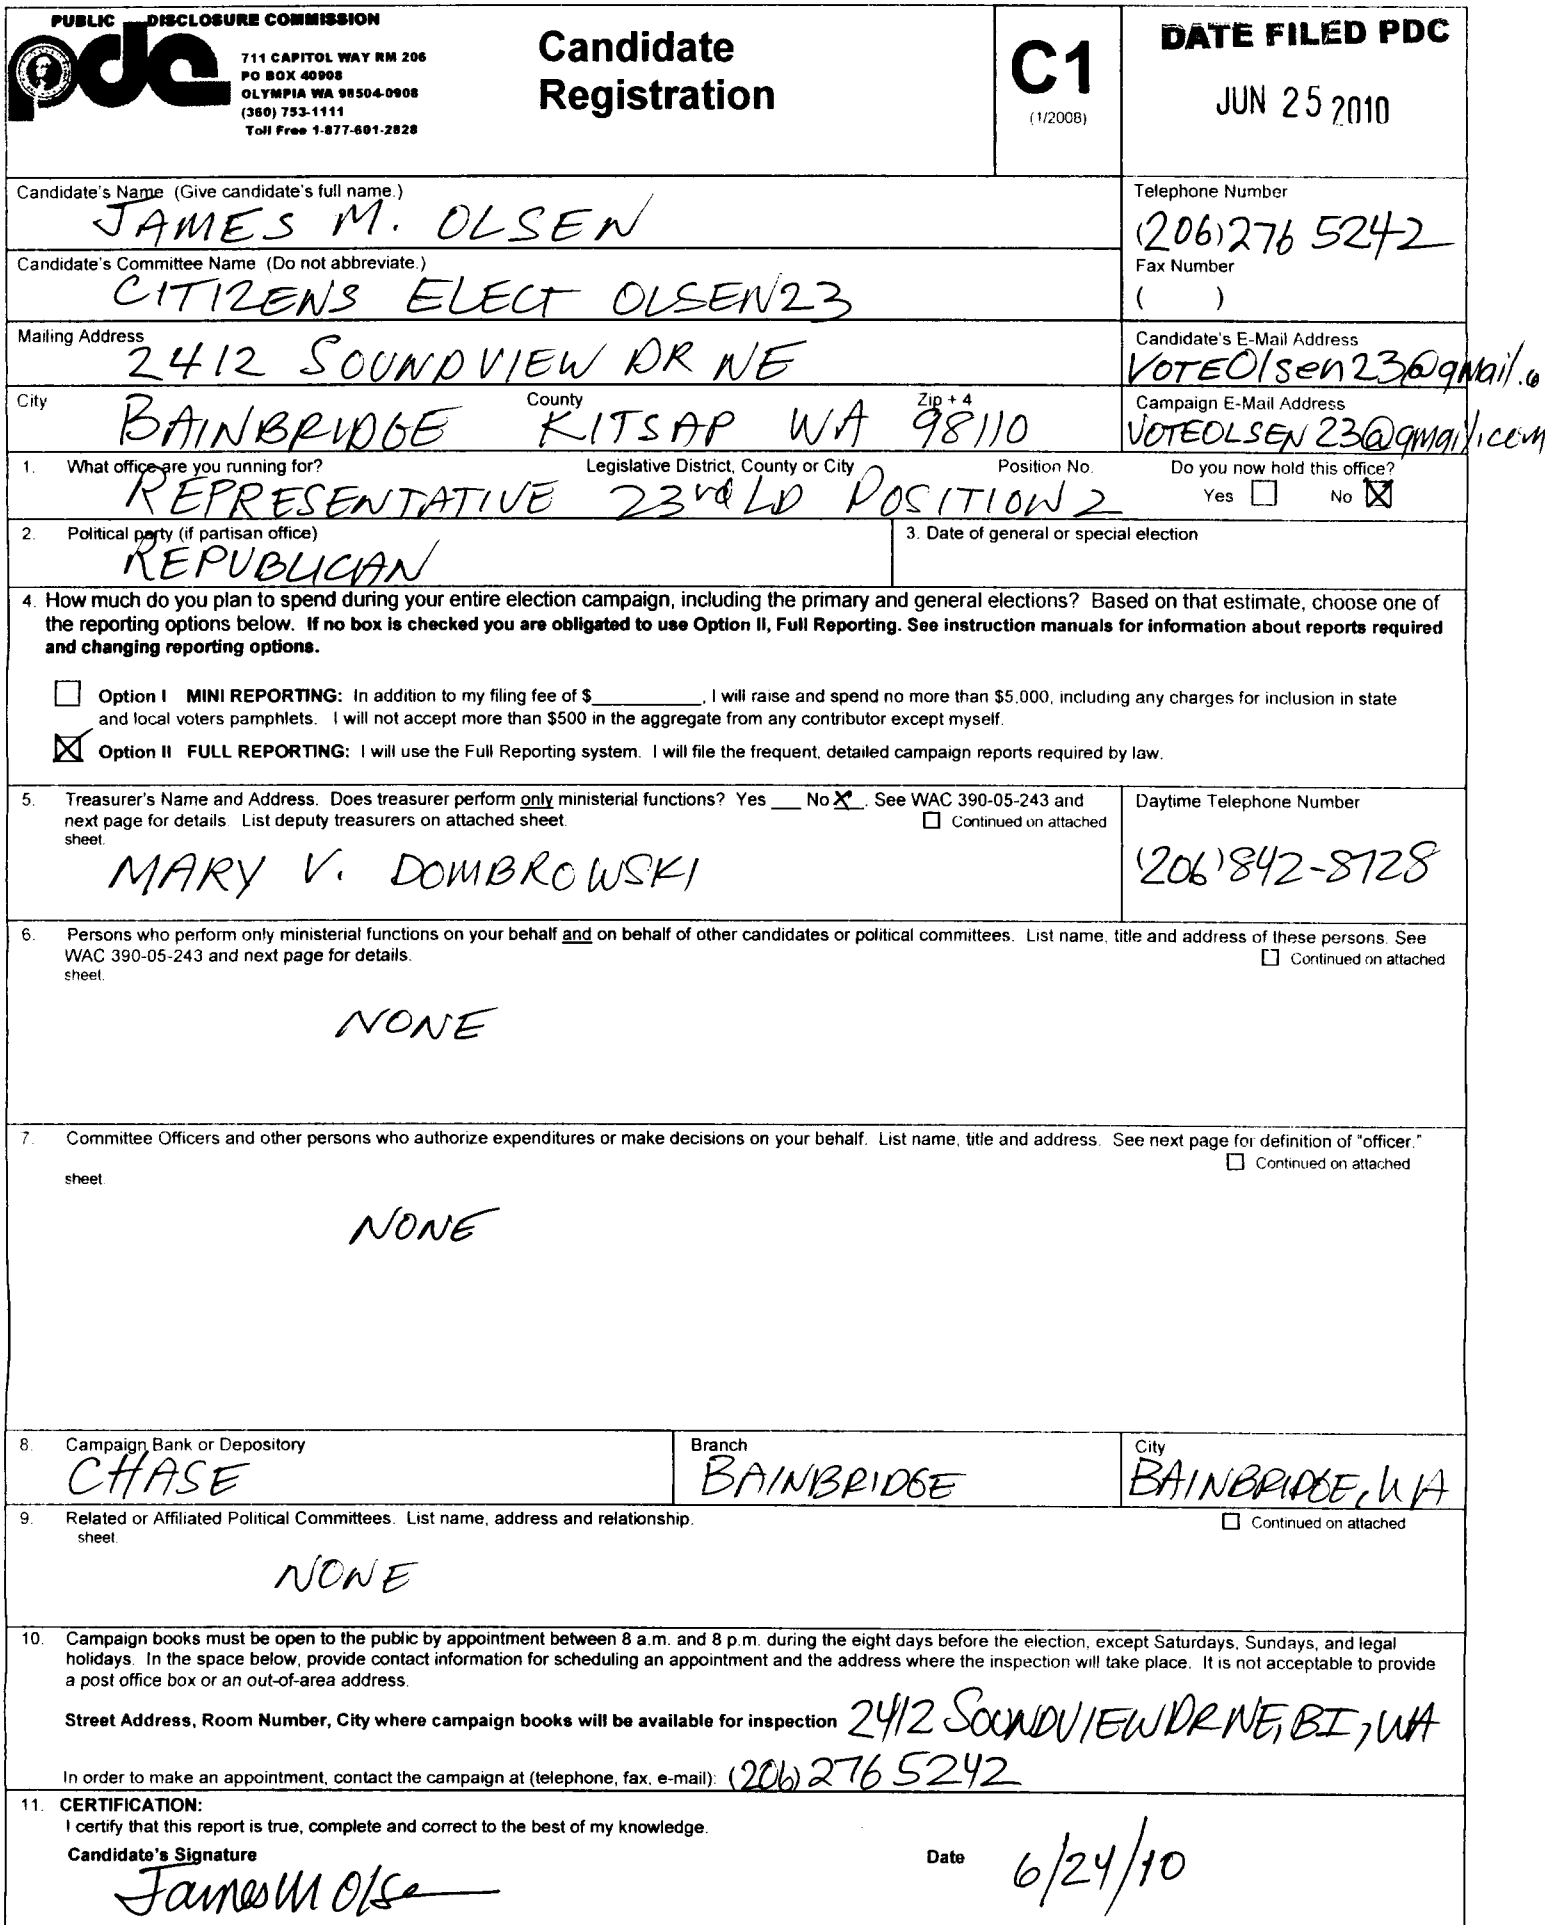 PUBLIC DISCLOSURE COMMISSION
pdc
711 CAPITOL WAY RM 206
PO BOX 40908
OLYMPIA WA 98504-0908
(360) 753-1111
Toll Free 1-877-601-2828
Candidate
Registration
C1
(1/2008)
DATE FILED PDC
JUN 25 2010
Candidate's Name (Give candidate's full name.)
JAMES M. OLSEN
Telephone Number
(206) 276 5242
Candidate's Committee Name (Do not abbreviate.)
CITIZENS ELECT OLSEN23
Fax Number
( )
Mailing Address
2412 SOUNDVIEW DR NE
Candidate's E-Mail Address
VOTEOlsen23@gmail.c
City County Zip + 4
BAINBRIDGE KITSAP WA 98110
Campaign E-Mail Address
VOTEOLSEN23@gmail.com
1. What office are you running for? Legislative District, County or City Position No. Do you now hold this office?
REPRESENTATIVE 23rd LD POSITION 2 Yes No X
2. Political party (if partisan office)
REPUBLICAN
3. Date of general or special election
4. How much do you plan to spend during your entire election campaign, including the primary and general elections? Based on that estimate, choose one of
the reporting options below. If no box is checked you are obligated to use Option II, Full Reporting. See instruction manuals for information about reports required
and changing reporting options.
Option I MINI REPORTING: In addition to my filing fee of $__________, I will raise and spend no more than $5,000, including any charges for inclusion in state
and local voters pamphlets. I will not accept more than $500 in the aggregate from any contributor except myself.
X Option II FULL REPORTING: I will use the Full Reporting system. I will file the frequent, detailed campaign reports required by law.
5. Treasurer's Name and Address. Does treasurer perform only ministerial functions? Yes ___ No X . See WAC 390-05-243 and
next page for details. List deputy treasurers on attached sheet. Continued on attached
sheet.
MARY V. DOMBROWSKI
Daytime Telephone Number
(206) 842-8728
6. Persons who perform only ministerial functions on your behalf and on behalf of other candidates or political committees. List name, title and address of these persons. See
WAC 390-05-243 and next page for details. Continued on attached
sheet.
NONE
7. Committee Officers and other persons who authorize expenditures or make decisions on your behalf. List name, title and address. See next page for definition of "officer."
Continued on attached
sheet.
NONE
8. Campaign Bank or Depository
CHASE
Branch
BAINBRIDGE
City
BAINBRIDGE, WA
9. Related or Affiliated Political Committees. List name, address and relationship. Continued on attached
sheet.
NONE
10. Campaign books must be open to the public by appointment between 8 a.m. and 8 p.m. during the eight days before the election, except Saturdays, Sundays, and legal
holidays. In the space below, provide contact information for scheduling an appointment and the address where the inspection will take place. It is not acceptable to provide
a post office box or an out-of-area address.
Street Address, Room Number, City where campaign books will be available for inspection 2412 SOUNDVIEW DR NE, BI, WA
In order to make an appointment, contact the campaign at (telephone, fax, e-mail): (206) 276 5242
11. CERTIFICATION:
I certify that this report is true, complete and correct to the best of my knowledge.
Candidate's Signature Date
James M Olse 6/24/10